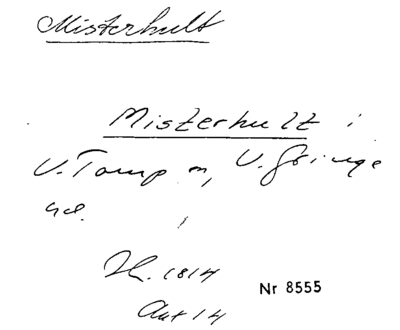 Misterhult
Misterhult i
V. Tomp m, V. Gringe
hd.
1814
Akt 14
Nr 8555